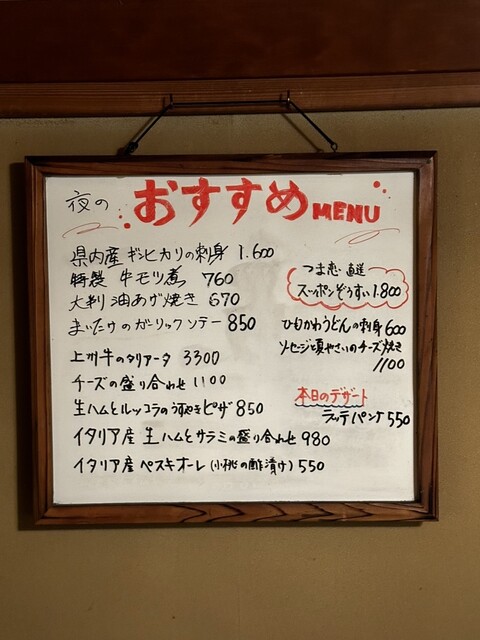 夜の おすすめ MENU
県内産 ギンヒカリの刺身 1.600
特製 牛モツ煮 760
大判 油あげ焼き 670
まいたけのガーリックソテー 850
上州牛のタリアータ 3300
チーズの盛り合わせ 1100
生ハムとルッコラのうすやきピザ 850
イタリア産 生ハムとサラミの盛り合わせ 980
イタリア産 ペスキオーレ (小桃の酢漬け) 550
つま恋 直送
スッポンぞうすい 1.800
ひもかわうどんの刺身 600
ソーセージと夏やさいのチーズ焼き
1100
本日のデザート
ラッテパンナ 550